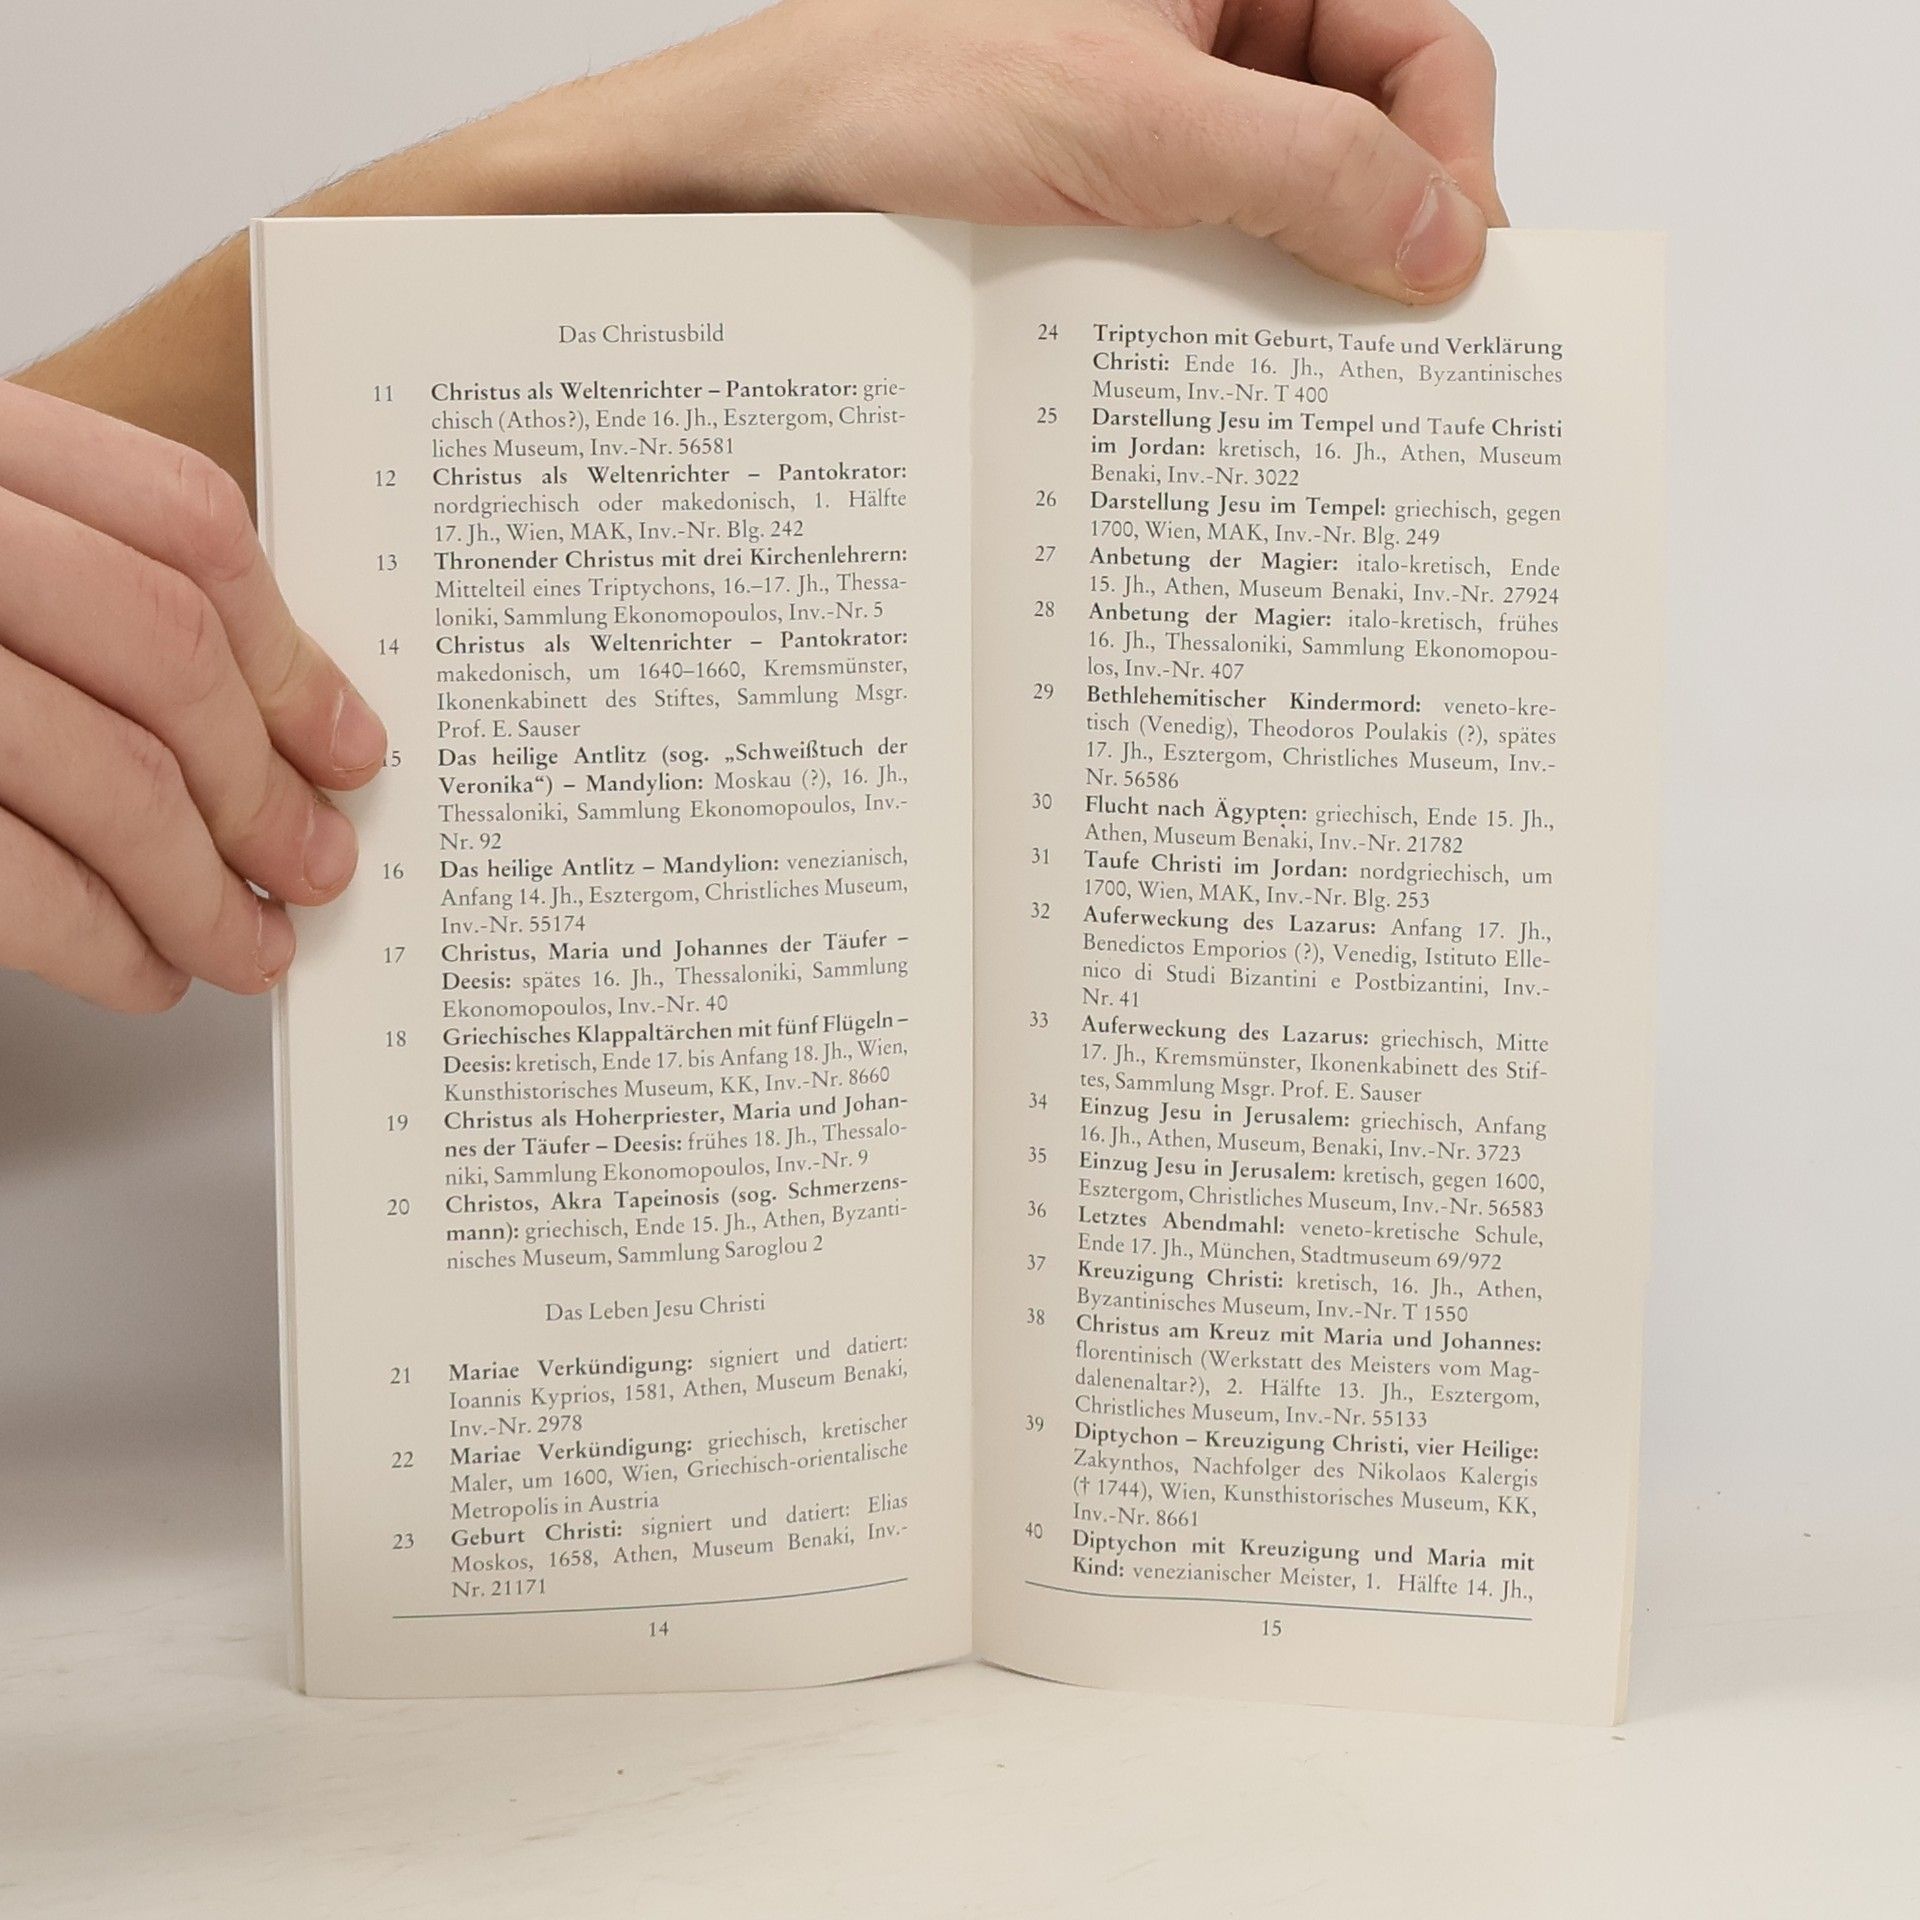 Das Christusbild
11 Christus als Weltenrichter – Pantokrator: grie-
chisch (Athos?), Ende 16. Jh., Esztergom, Christ-
liches Museum, Inv.-Nr. 56581
12 Christus als Weltenrichter – Pantokrator:
nordgriechisch oder makedonisch, 1. Hälfte
17. Jh., Wien, MAK, Inv.-Nr. Blg. 242
13 Thronender Christus mit drei Kirchenlehrern:
Mittelteil eines Triptychons, 16.–17. Jh., Thessa-
loniki, Sammlung Ekonomopoulos, Inv.-Nr. 5
14 Christus als Weltenrichter – Pantokrator:
makedonisch, um 1640–1660, Kremsmünster,
Ikonenkabinett des Stiftes, Sammlung Msgr.
Prof. E. Sauser
15 Das heilige Antlitz (sog. „Schweißtuch der
Veronika“) – Mandylion: Moskau (?), 16. Jh.,
Thessaloniki, Sammlung Ekonomopoulos, Inv.-
Nr. 92
16 Das heilige Antlitz – Mandylion: venezianisch,
Anfang 14. Jh., Esztergom, Christliches Museum,
Inv.-Nr. 55174
17 Christus, Maria und Johannes der Täufer –
Deesis: spätes 16. Jh., Thessaloniki, Sammlung
Ekonomopoulos, Inv.-Nr. 40
18 Griechisches Klappaltärchen mit fünf Flügeln –
Deesis: kretisch, Ende 17. bis Anfang 18. Jh., Wien,
Kunsthistorisches Museum, KK, Inv.-Nr. 8660
19 Christus als Hoherpriester, Maria und Johan-
nes der Täufer – Deesis: frühes 18. Jh., Thessalo-
niki, Sammlung Ekonomopoulos, Inv.-Nr. 9
20 Christos, Akra Tapeinosis (sog. Schmerzens-
mann): griechisch, Ende 15. Jh., Athen, Byzanti-
nisches Museum, Sammlung Saroglou 2
Das Leben Jesu Christi
21 Mariae Verkündigung: signiert und datiert:
Ioannis Kyprios, 1581, Athen, Museum Benaki,
Inv.-Nr. 2978
22 Mariae Verkündigung: griechisch, kretischer
Maler, um 1600, Wien, Griechisch-orientalische
Metropolis in Austria
23 Geburt Christi: signiert und datiert: Elias
Moskos, 1658, Athen, Museum Benaki, Inv.-
Nr. 21171
14
24 Triptychon mit Geburt, Taufe und Verklärung
Christi: Ende 16. Jh., Athen, Byzantinisches
Museum, Inv.-Nr. T 400
25 Darstellung Jesu im Tempel und Taufe Christi
im Jordan: kretisch, 16. Jh., Athen, Museum
Benaki, Inv.-Nr. 3022
26 Darstellung Jesu im Tempel: griechisch, gegen
1700, Wien, MAK, Inv.-Nr. Blg. 249
27 Anbetung der Magier: italo-kretisch, Ende
15. Jh., Athen, Museum Benaki, Inv.-Nr. 27924
28 Anbetung der Magier: italo-kretisch, frühes
16. Jh., Thessaloniki, Sammlung Ekonomopou-
los, Inv.-Nr. 407
29 Bethlehemitischer Kindermord: veneto-kre-
tisch (Venedig), Theodoros Poulakis (?), spätes
17. Jh., Esztergom, Christliches Museum, Inv.-
Nr. 56586
30 Flucht nach Ägypten: griechisch, Ende 15. Jh.,
Athen, Museum Benaki, Inv.-Nr. 21782
31 Taufe Christi im Jordan: nordgriechisch, um
1700, Wien, MAK, Inv.-Nr. Blg. 253
32 Auferweckung des Lazarus: Anfang 17. Jh.,
Benedictos Emporios (?), Venedig, Istituto Elle-
nico di Studi Bizantini e Postbizantini, Inv.-
Nr. 41
33 Auferweckung des Lazarus: griechisch, Mitte
17. Jh., Kremsmünster, Ikonenkabinett des Stif-
tes, Sammlung Msgr. Prof. E. Sauser
34 Einzug Jesu in Jerusalem: griechisch, Anfang
16. Jh., Athen, Museum, Benaki, Inv.-Nr. 3723
35 Einzug Jesu in Jerusalem: kretisch, gegen 1600,
Esztergom, Christliches Museum, Inv.-Nr. 56583
36 Letztes Abendmahl: veneto-kretische Schule,
Ende 17. Jh., München, Stadtmuseum 69/972
37 Kreuzigung Christi: kretisch, 16. Jh., Athen,
Byzantinisches Museum, Inv.-Nr. T 1550
38 Christus am Kreuz mit Maria und Johannes:
florentinisch (Werkstatt des Meisters vom Mag-
dalenenaltar?), 2. Hälfte 13. Jh., Esztergom,
Christliches Museum, Inv.-Nr. 55133
39 Diptychon – Kreuzigung Christi, vier Heilige:
Zakynthos, Nachfolger des Nikolaos Kalergis
(† 1744), Wien, Kunsthistorisches Museum, KK,
Inv.-Nr. 8661
40 Diptychon mit Kreuzigung und Maria mit
Kind: venezianischer Meister, 1. Hälfte 14. Jh.,
15